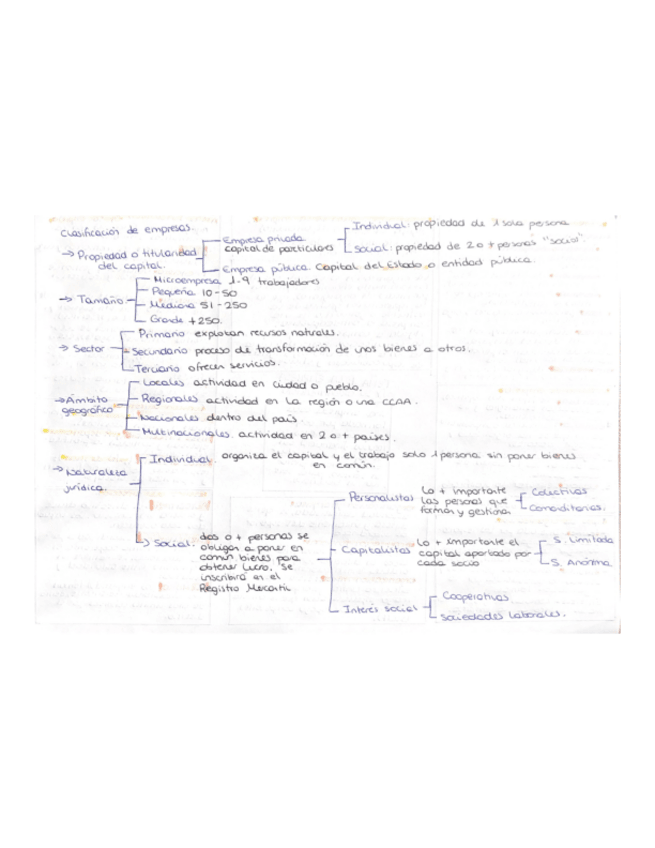 Clasificación de empresas.
→ Propiedad o titularidad del capital.
Empresa privada. capital de particulares
Individual: propiedad de 1 sola persona
Social: propiedad de 2 o + personas "socios"
Empresa pública. Capital del Estado o entidad pública.
→ Tamaño
Microempresa 1-9 trabajadores
Pequeña 10-50
Mediana 51-250
Grande +250.
→ Sector
Primario explotan recursos naturales.
Secundario proceso de transformación de unos bienes a otros.
Terciario ofrecen servicios.
→ Ámbito geográfico
Locales actividad en ciudad o pueblo.
Regionales actividad en la región o una CCAA.
Nacionales dentro del país.
Multinacionales. actividad en 2 o + países.
→ Naturaleza jurídica.
Individual. organiza el capital y el trabajo solo 1 persona sin poner bienes
en común.
Social: dos o + personas se
obligan a poner en
común bienes para
obtener lucro. Se
inscribirá en el
Registro Mercantil
Personalistas
Lo + importante
las personas que
forman y gestionan
Colectivas
Comanditarias.
Capitalistas
Lo + importante el
capital aportado por
cada socio
S. Limitada
S. Anónima.
Interés social
Cooperativas
Sociedades laborales.